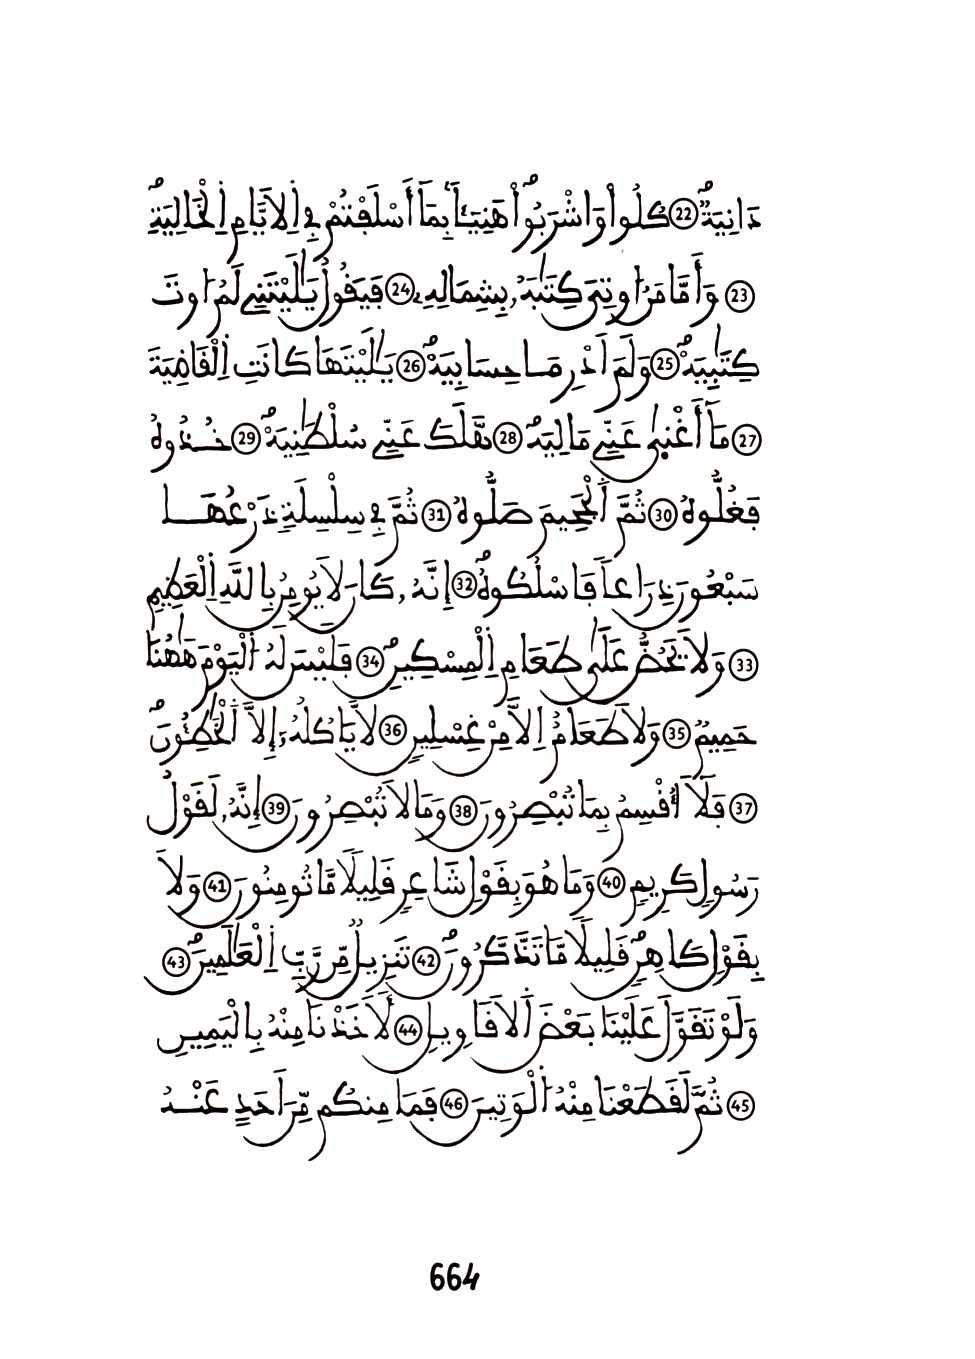 دَانِيَةٌ ㉒ كُلُواْ وَاشْرَبُواْ هَنِيٓـَٔاۢ بِمَآ أَسْلَفْتُمْ فِے اِ۬لَايَّامِ اِ۬لْخَالِيَةِ
㉓ وَأَمَّا مَنُ ا۟وتِيَ كِتَٰبَهُۥ بِشِمَالِهِۦ ㉔ فَيَقُولُ يَٰلَيْتَنِے لَمُ ا۟وتَ
كِتَٰبِيَهْ ㉕ وَلَمَ اَدْرِ مَا حِسَابِيَهْ ㉖ يَٰلَيْتَهَا كَانَتِ اِ۬لْقَاضِيَةَ
㉗ مَآ أَغْن۪يٰ عَنِّے مَالِيَهْ ㉘ هَّلَكَ عَنِّے سُلْطَٰنِيَهْ ㉙ خُذُوهُ
فَغُلُّوهُ ㉚ ثُمَّ اَ۬لْجَحِيمَ صَلُّوهُ ㉛ ثُمَّ فِے سِلْسِلَةٖ ذَرْعُهَا
سَبْعُونَ ذِرَاعاٗ فَاسْلُكُوهُ ㉜ إِنَّهُۥ كَانَ لَا يُومِنُ بِاللَّهِ اِ۬لْعَظِيمِ
㉝ وَلَا يَحُضُّ عَلَيٰ طَعَامِ اِ۬لْمِسْكِينِ ㉞ فَلَيْسَ لَهُ اُ۬لْيَوْمَ هَٰهُنَا
حَمِيمٞ ㉟ وَلَا طَعَامٌ اِلَّا مِنْ غِسْلِينٖ ㊱ لَّا يَاكُلُهُۥٓ إِلَّا اَ۬لْخَٰطِـُٔونَ
㊲ فَلَآ أُقْسِمُ بِمَا تُبْصِرُونَ ㊳ وَمَا لَا تُبْصِرُونَ ㊴ إِنَّهُۥ لَقَوْلُ
رَسُولٖ كَرِيمٖ ㊵ وَمَا هُوَ بِقَوْلِ شَاعِرٖ قَلِيلاٗ مَّا تُومِنُونَ ㊶ وَلَا
بِقَوْلِ كَاهِنٖ قَلِيلاٗ مَّا تَذَّكَّرُونَ ㊷ تَنزِيلٞ مِّن رَّبِّ اِ۬لْعَٰلَمِينَ ㊸
وَلَوْ تَقَوَّلَ عَلَيْنَا بَعْضَ اَ۬لَاقَاوِيلِ ㊹ لَأَخَذْنَا مِنْهُ بِالْيَمِينِ
㊺ ثُمَّ لَقَطَعْنَا مِنْهُ اُ۬لْوَتِينَ ㊻ فَمَا مِنكُم مِّنَ اَحَدٍ عَنْهُ
664